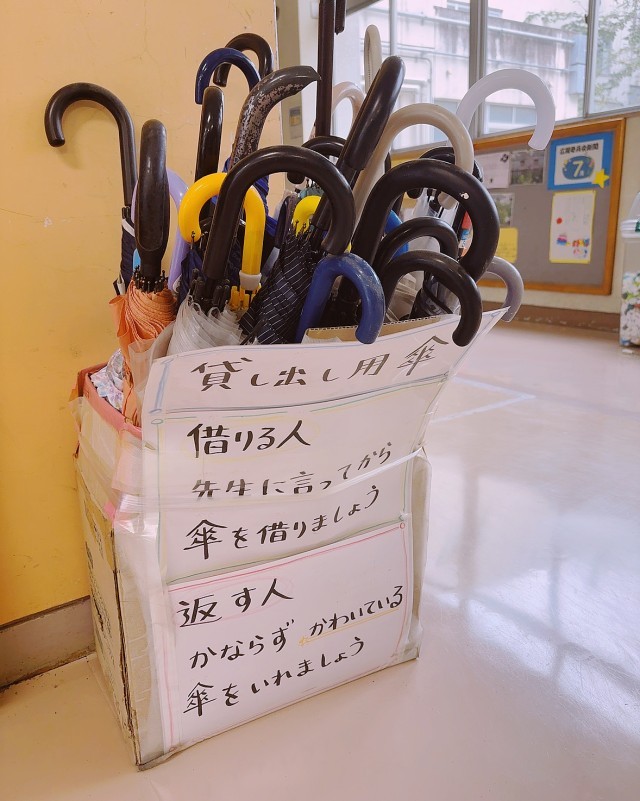 貸し出し用傘
借りる人
先生に言ってから
傘を借りましょう
返す人
かならず かわいている
傘をいれましょう
広報委員会新聞
7月